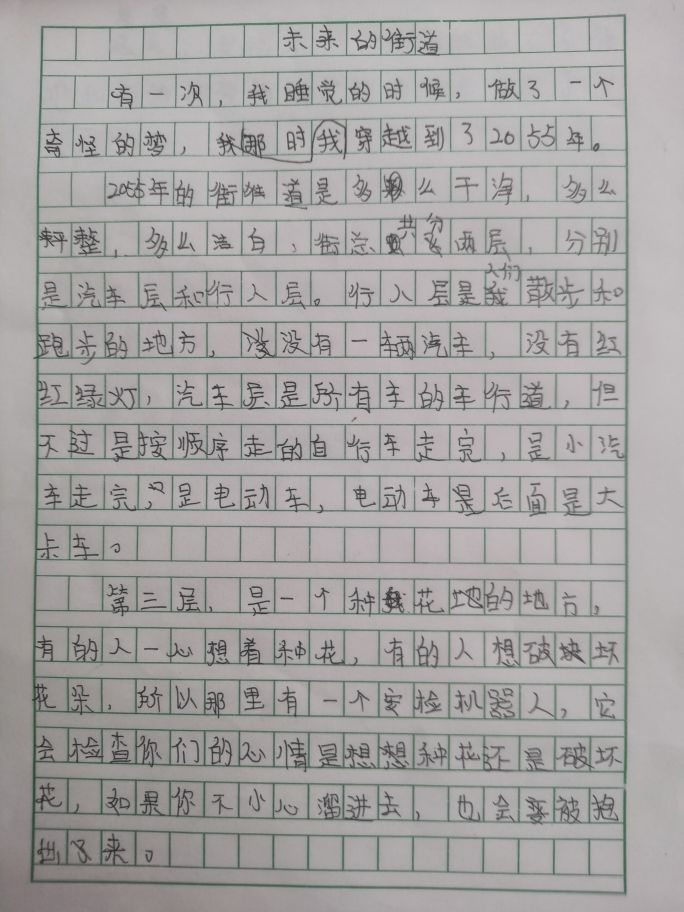 未来的街道
有一次，我睡觉的时候，做了一个
奇怪的梦，我那时我穿越到了2055年。
2055年的街道是多么干净，多么
平整，多么洁白，街总共分两层，分别
是汽车层和行人层。行人层是人们散步和
跑步的地方，没有一辆汽车，没有红
红绿灯，汽车层是所有车的车行道，但
不过是按顺序走的自行车走完，是小汽
车走完，是电动车，电动车是后面是大
卡车。
第三层，是一个种花地的地方，
有的人一心想着种花，有的人想破坏
花朵，所以那里有一个安检机器人，它
会检查你们的心情是想想种花还是破坏
花，如果你不小心溜进去，也会被抱
出了来。